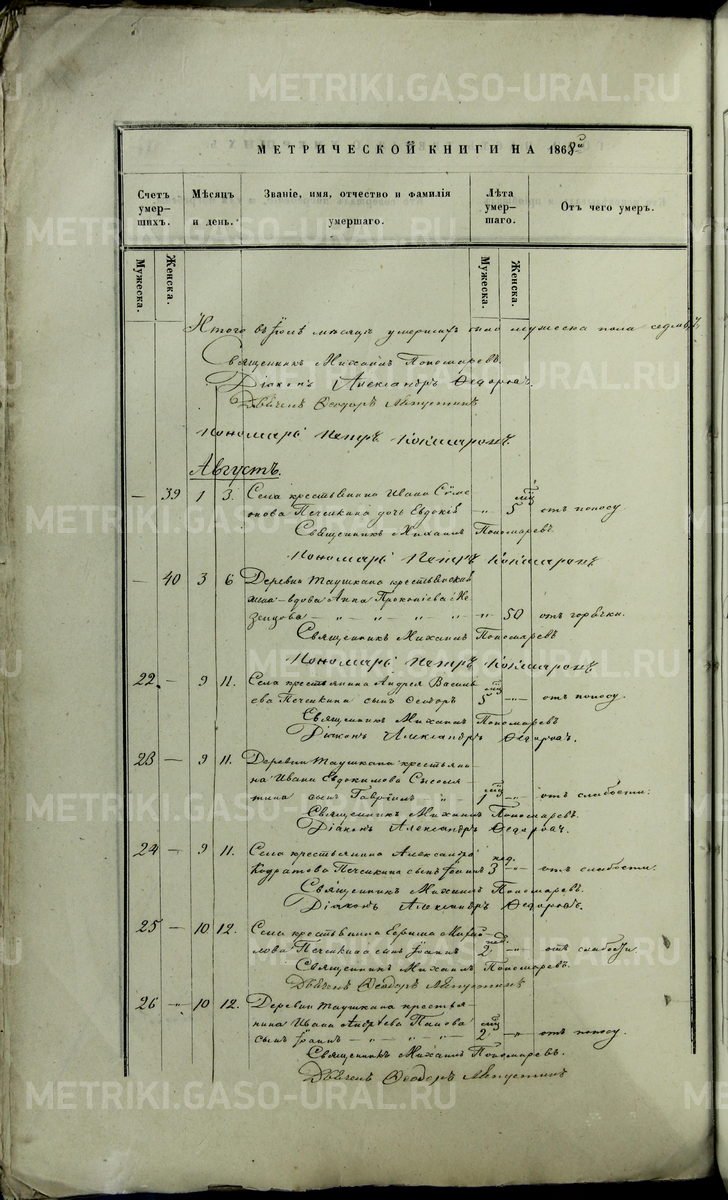 МЕТРИЧЕСКОЙ КНИГИ НА 1868й
Счетъ умерших. Мѣсяцъ и день. Званіе, имя, отчество и фамилія умершаго. Лѣта умершаго. Отъ чего умеръ.
Мужеска. Женска. Мужеска. Женска.
Итого въ Іюлѣ мѣсяцѣ умершихъ мужеска пола седмь
Священникъ Михаилъ Пономаревъ.
Діаконъ Александръ Ѳедоровъ.
Ѳеодоръ
Пономарь Петръ
Августъ.
— 39 1 3. Села крестьянина Ивана Симе-
онова Печенкина дочь Евдокія — „ — 5 мѣс. отъ поносу.
Священникъ Михаилъ Пономаревъ.
Пономарь Петръ
— 40 3 6 Деревни Таушкана крестьянская
жена – вдова Анна Прокопіева
— „ — „ — „ — „ — 50 отъ горячки.
Священникъ Михаилъ Пономаревъ
Пономарь Петръ
22. — 9 11. Села крестьянина Андрея Василь
ева Печенкина сынъ Ѳеодоръ 5 мѣс. — „ — отъ поносу.
Священникъ Михаилъ Пономаревъ
Діаконъ Александръ Ѳедоровъ.
23 — 9 11. Деревни Таушкана крестьяни-
на Ивана Евдокимова Сысоля-
тина сынъ Гавріилъ „ 1 мѣс. — „ — отъ слабости.
Священникъ Михаилъ Пономаревъ.
Діаконъ Александръ Ѳедоровъ.
24 — 9 11. Села крестьянина Александра
Кодратова Печенкина сынъ Іоаннъ 3 нед. — „ — отъ слабости.
Священникъ Михаилъ Пономаревъ.
Діаконъ Александръ Ѳедоровъ.
25 — 10 12. Села крестьянина Михай
лова Печенкина сынъ Іоаннъ 2 нед. — „ — отъ слабости.
Священникъ Михаилъ Пономаревъ.
Ѳеодоръ
26 — „ — 10 12. Деревни Таушкана крестья-
нина Ивана Андреева Попова
сынъ Іоаннъ — „ — „ — „ — 2 мѣс. — „ — отъ поносу.
Священникъ Михаилъ Пономаревъ.
Ѳеодоръ
METRIKI.GASO-URAL.RU